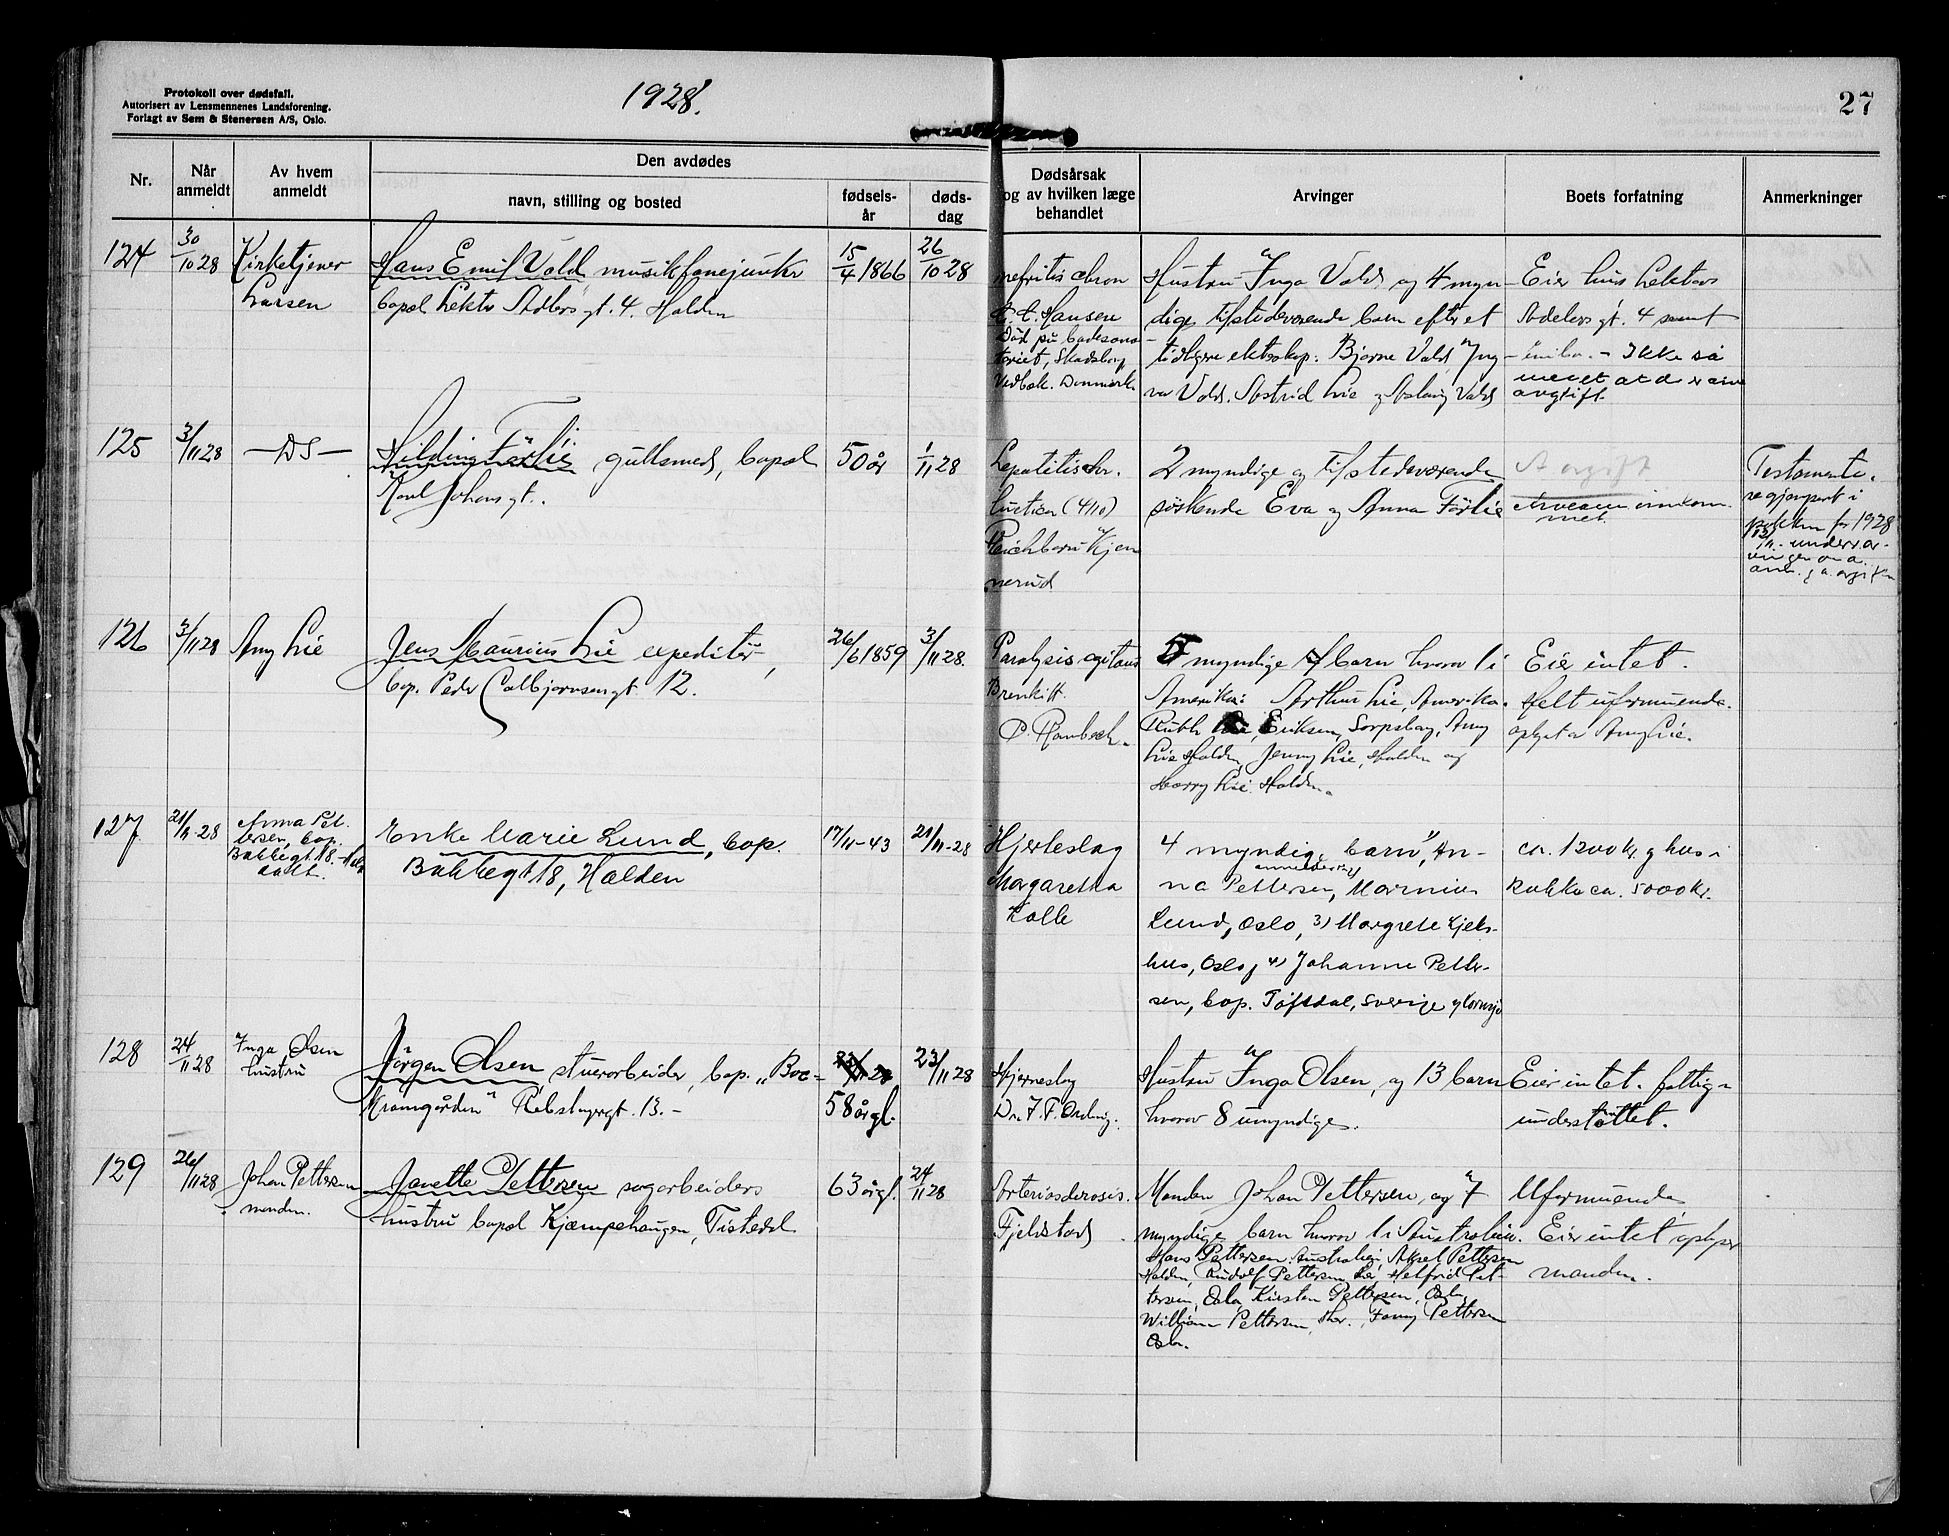 Protokoll over dødsfall.
Autorisert av Lensmennenes Landsforening.
Forlagt av Sem & Stenersen A/S, Oslo.
1928.
27
Nr.
Når anmeldt
Av hvem anmeldt
Den avdødes
navn, stilling og bosted
fødselsår
dødsdag
Dødsårsak og av hvilken læge behandlet
Arvinger
Boets forfatning
Anmerkninger
124
30/10 28
Kirketjener
Larsen
Hans Emil Vold, musikfanejunker
bopel Lektor Adlersgt. 4. Halden
15/4 1866
26/10 28
nefritis chron
Hansen
Død på badesana-
toriet, Skodsborg
Vedbæk. Danmark.
Hustru Inga Vold og 4 myn-
dige tilstedeværende barn efter et
tidligere ekteskap: Bjarne Vold, Ing-
var Vold, Astrid Lie og Aslaug Vold
Eier hus Lektor
Adelers gt. 4 samt
innbo. - Ikke så
meget at der
avgift.
125
3/11 28
— DS —
Hilding Förlie gullsmed, bopel
Karl Johans gt.
50 år
1/11 28
(4/10)
nerud
2 myndige og tilstedeværende
søskende Eva og Anna Förlie
Avgift
innkom-
met.
Testamente
i
for 1928
126
3/11 28
Amy Lie
Jens Maurius Lie expeditør,
bop. Peder Colbjørnsengt 12.
26/6 1859
3/11 28.
Paralysis agitans
P. Rambech.
5 myndige barn hvorav 1 i
Amerika: Arthur Lie, Amerika.
Ruth Eriksen, Sarpsborg, Amy
Lie Halden, Jenny Lie, Halden og
Harry Lie. Halden.
Eier intet.
Helt uformuende.
Amy Lie.
127
21/11-28
Anna Pet-
tersen, bop.
Bakkegt 18.
Enke Marie Lund, bop.
Bakkegt 18, Halden
17/11-43
21/11-28
Hjerteslag
Margaretha
Kolle
4 myndige barn, 1) An-
na Pettersen, 2) Marinius
Lund, Oslo, 3) Margrete Kjels-
hus, Oslo, 4) Johanne Petter-
sen, bop. Töftdal, Sverige
ca. 1200 kr. og hus i
Bakke ca. 5000 kr.
128
24/11 28
Inga Olsen
hustru
Jörgen Olsen, stuerarbeider, bop. „Boc-
Kramgården" Rebslagergt. 13. -
58 år gl.
23/11 28
Hjerneslag
Dr.
Hustru Inga Olsen, og 13 barn
hvorav 8 umyndige.
Eier intet. fattig-
understöttet.
129
26/11 28
Johan Pettersen
manden.
Janette Pettersen sagarbeiders
hustru bopel Kjæmpehaugen, Tistedal
63 år gl.
24/11 28
Arteriosclerosis.
Fjeldstad
Manden Johan Pettersen, og 7
myndige barn hvorav 1 i Australien.
Hans Pettersen Australien, Aksel Pettersen
Halden, Rudolf Pettersen, Helfrid Pet-
tersen, Oslo, Kirsten Pettersen, Oslo,
William Pettersen, Fanny Pettersen
Oslo.
Uformuende.
Eier intet
manden.